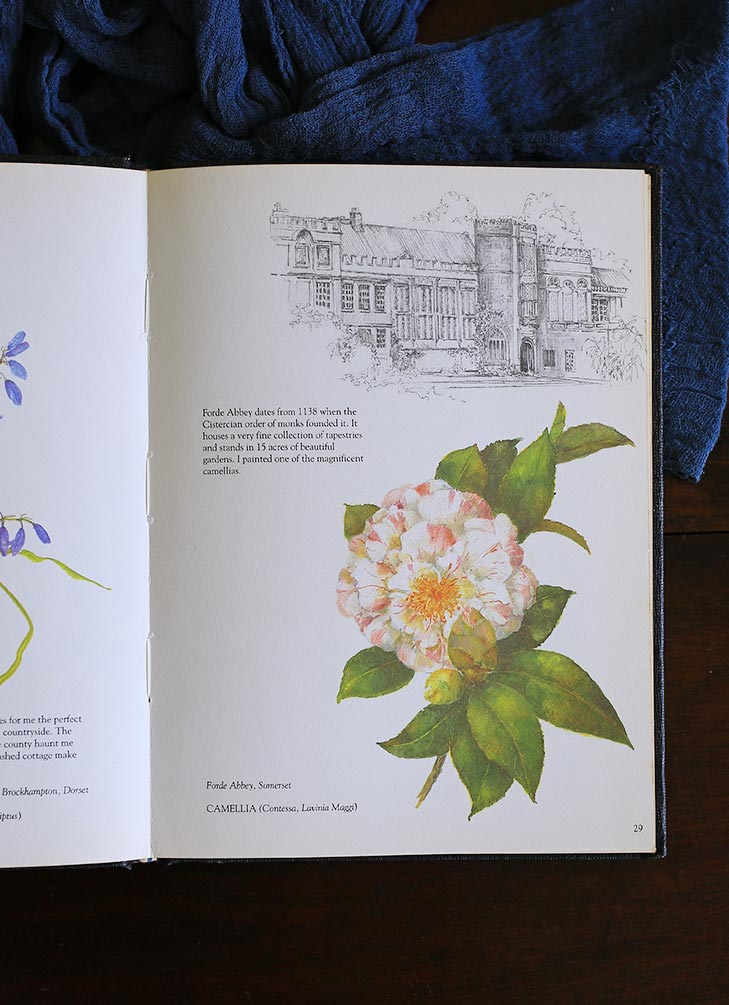 es for me the perfect
countryside. The
county haunt me
shed cottage make
Brockhampton, Dorset
iptus)
Forde Abbey dates from 1138 when the
Cistercian order of monks founded it. It
houses a very fine collection of tapestries
and stands in 15 acres of beautiful
gardens. I painted one of the magnificent
camellias.
Forde Abbey, Somerset
CAMELLIA (Contessa, Lavinia Maggi)
29